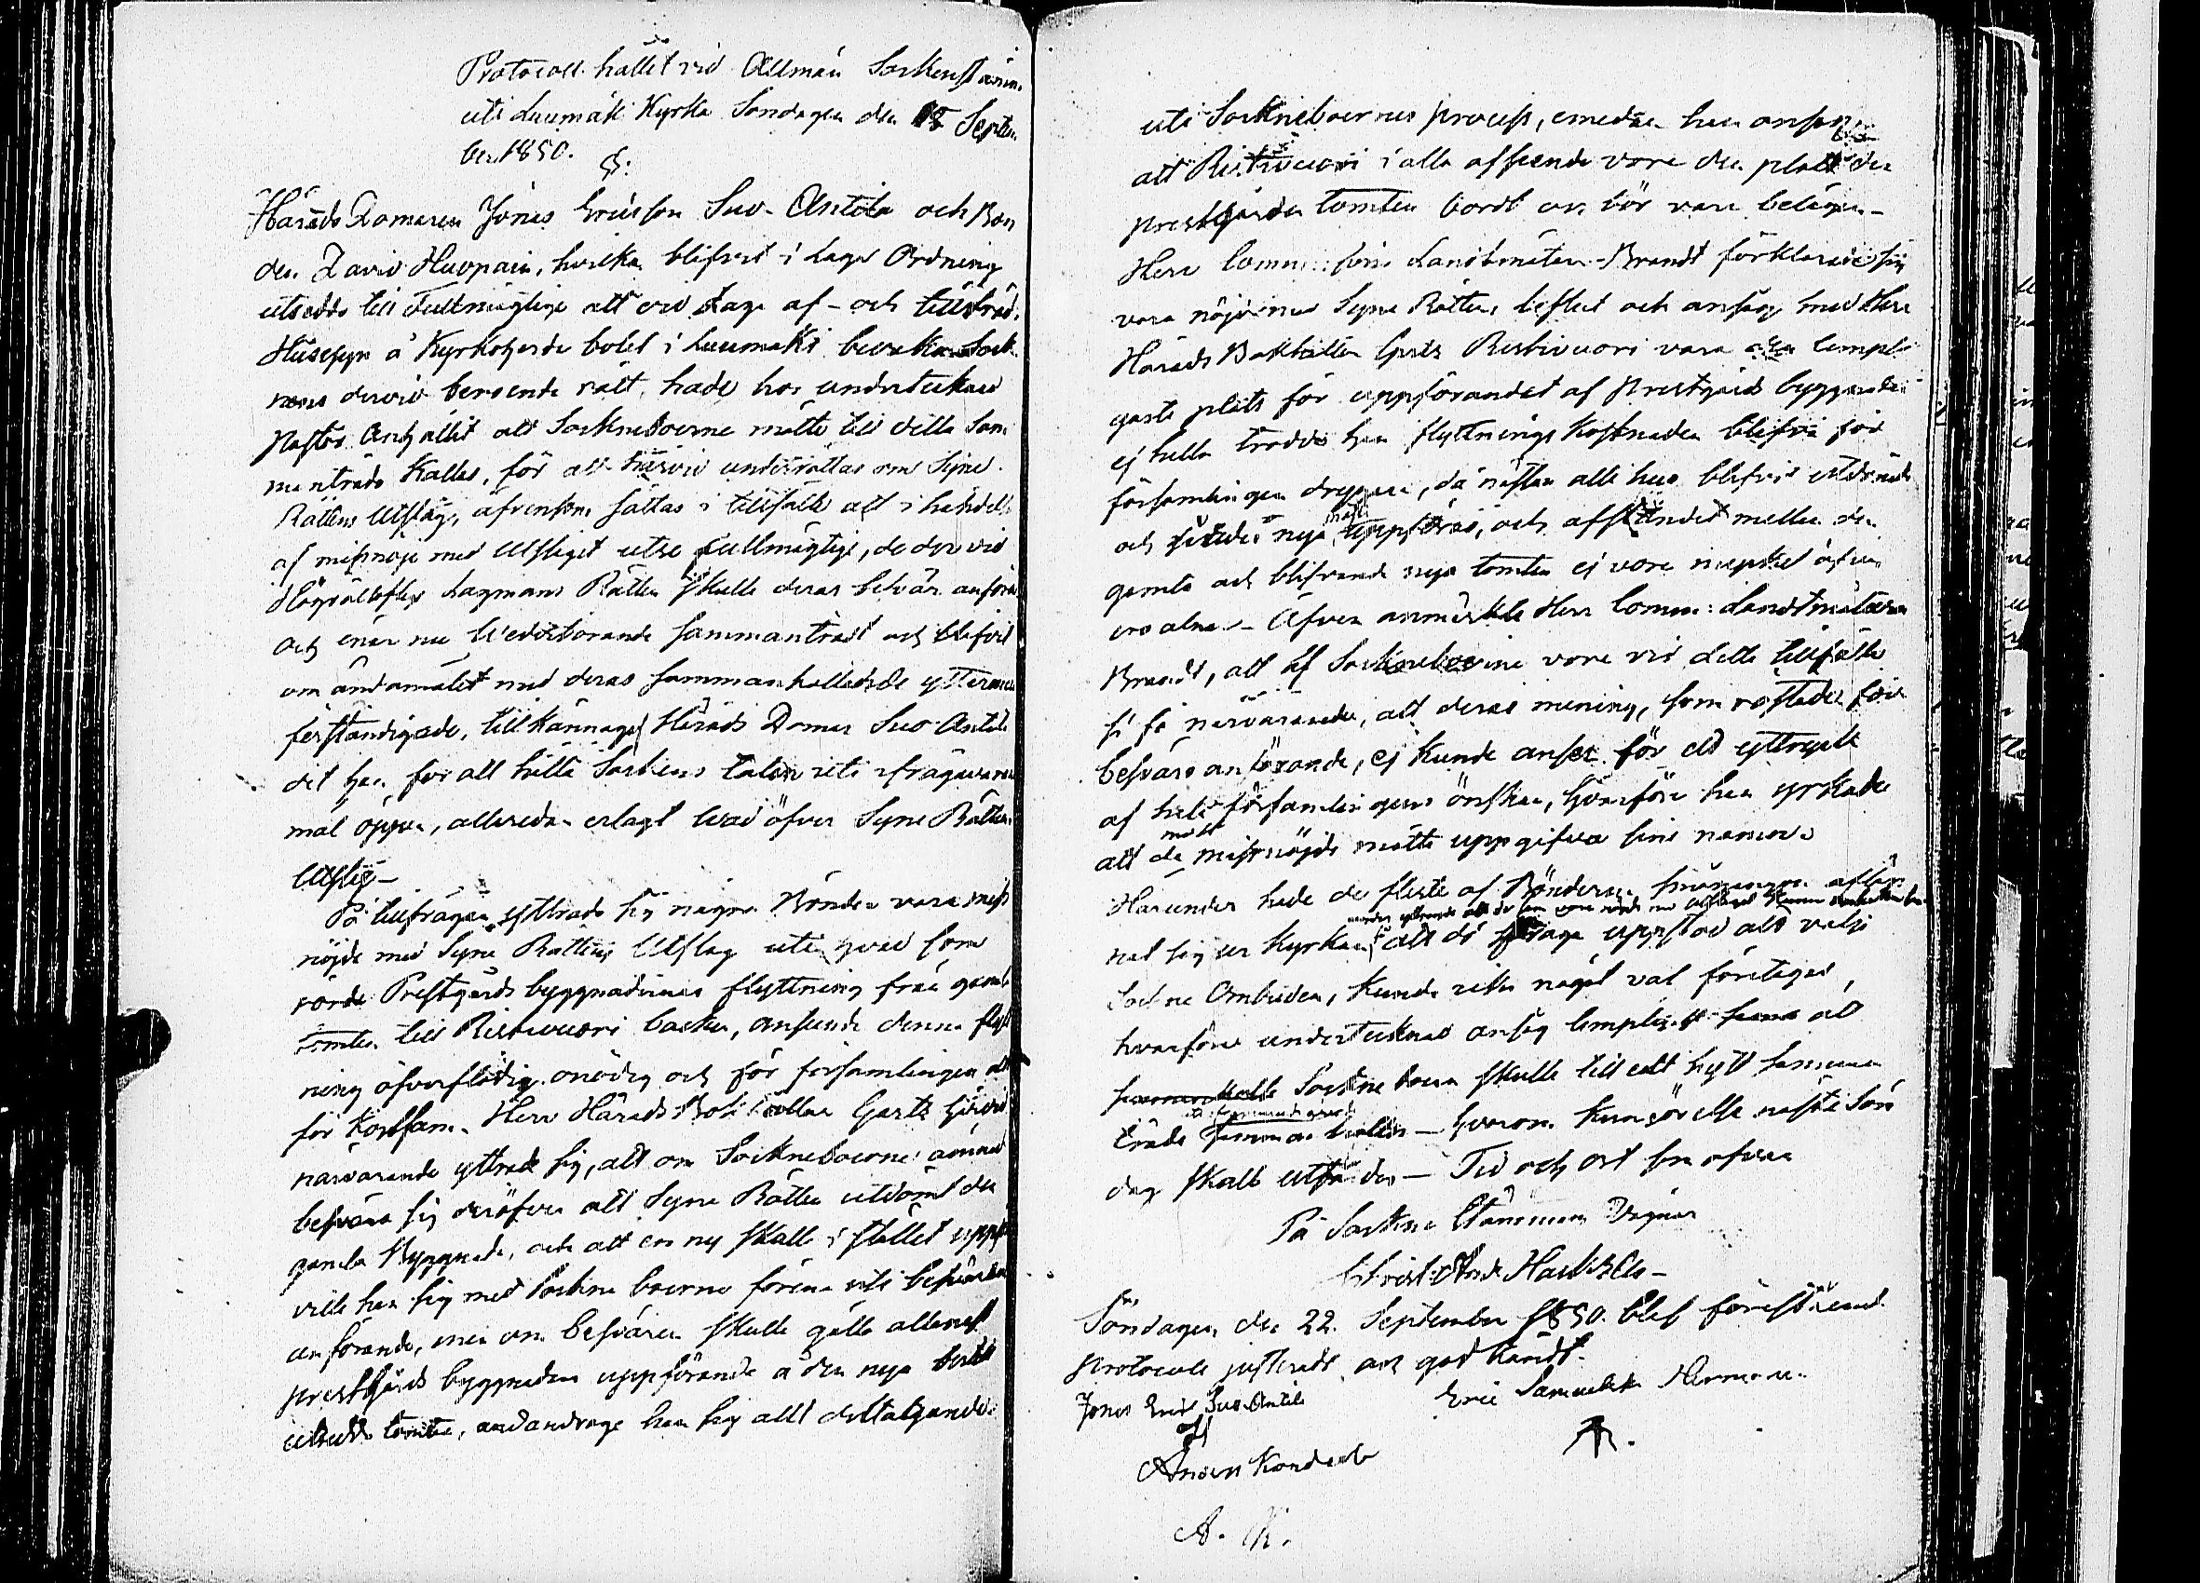 Protocoll hållet vid Allmän Sockenstämma
uti Luumäki Kyrka Söndagen den 15 Septem
ber 1850. §:
Härads Domaren Jonas Ericsson Suo-Anttila och Bon
den David Huopain, hvilka blifvit i laga Ordning
utsedde till Fullmägtige att vid Laga af- och tillträdes
Husesyn å Kyrkoherde bolet i Luumäki bevaka Sock
nens dervid beroende rätt, hade hos undertecknad
Pastor Anhållit att Socknéboerne måtte till detta Sam
manträde Kallas, för att härvid underrättas om Syne
Rättens Utslag, äfvensom sättas i tillfälle att i händelse
af missnöje med Utslaget utse Fullmägtige, de der vid
Höglofliga Lagmans Rätten skulle deras besvär anföra
och enär nu Vederbörande sammanträdt och blifvit
om ändamålet med deras sammankallande ytterligare
förständigade, tillkännagaf Härads Domar Suo-Anttila
det han, för att hålla Sockens talan uti ifrågavarande
mål öppen, allaredan erlagt vad öfver Syne Rättens
Utslag—
På tillfrågan yttrade sig någre Bönder vara miss
nöjde med Syne Rättens Utslag uti hvad som
rörde Prestgårds byggnadernes flyttning från gamla
tomten till Ristivuori backe, anseende denna flytt
ning öfverflödig onödig och för församlingen allt
för kostsam. Herr Härads Bokhållar Gartz härvid
närvarande yttrade sig, att om Socknéboerne ämnade
besvära sig deröfver att Syne Rätten utdömt den
gamla Byggnad, och att en ny skall i stället uppföras
ville han sig med Sockne boerne förena uti besvärens
anförande, men om besvären skulle gälla allenast
prestgårds byggnaden uppförande å den nya
utsedde tomten, undandroge han sig allt deltagande
uti Socknéboernes process, emedan han ansåg
att Ristivuori i alla afseende vore den plats der
prestgårds tomten bordt och bör vara belägen—
Herr Commissions Landtmätaren Brandt förklarade sig
vara nöjd med Syne Rättens beslut och ansåg med Herr
Härads Bokhållar Gartz Ristivuori vara den lämpli
gaste plats för uppförandet af Prestgårds byggnaden
ej heller trodde han flyttnings Kostnaden blifva för
församlingen drygare, då nästan alla hus blifvit utdömde
och nya måste uppföras, och afståndet mellan den
gamla och blifvande nya tomten ej vore mycket öfver
alnar— Äfven anmärkte Herr Comm: Landtmätaren
Brandt, att af Socknéboerne vore vid detta tillfälle
så få närvarande, att deras mening, som röstade för
besvärs anförande, ej Kunde anses för ett uttryck
af hela församlingens önskan, hvarföre han yrkade
att de mest missnöjde måtte uppgifva sina namn.
Härunder hade de fleste af Bönderne aflägs
nat sig ur Kyrkan, att då fråga uppstod att välja
Sockne Ombuden, Kunde icke något val företagas,
hvarföre undertecknad ansåg lämpligast att
Sockne boerne skulle till ett nytt samman
träde — hvarom Kungörelse nästa Sön
dag skall utfärdas— Tid och ort som ofvan
På Sockne Stämmans Vägnar
Söndagen den 22. September 1850. blef föreståend
protocoll justeradt och godkändt.
Jonas Ericss Suo-Anttila
Eric Samuelss
Anders
A. K.